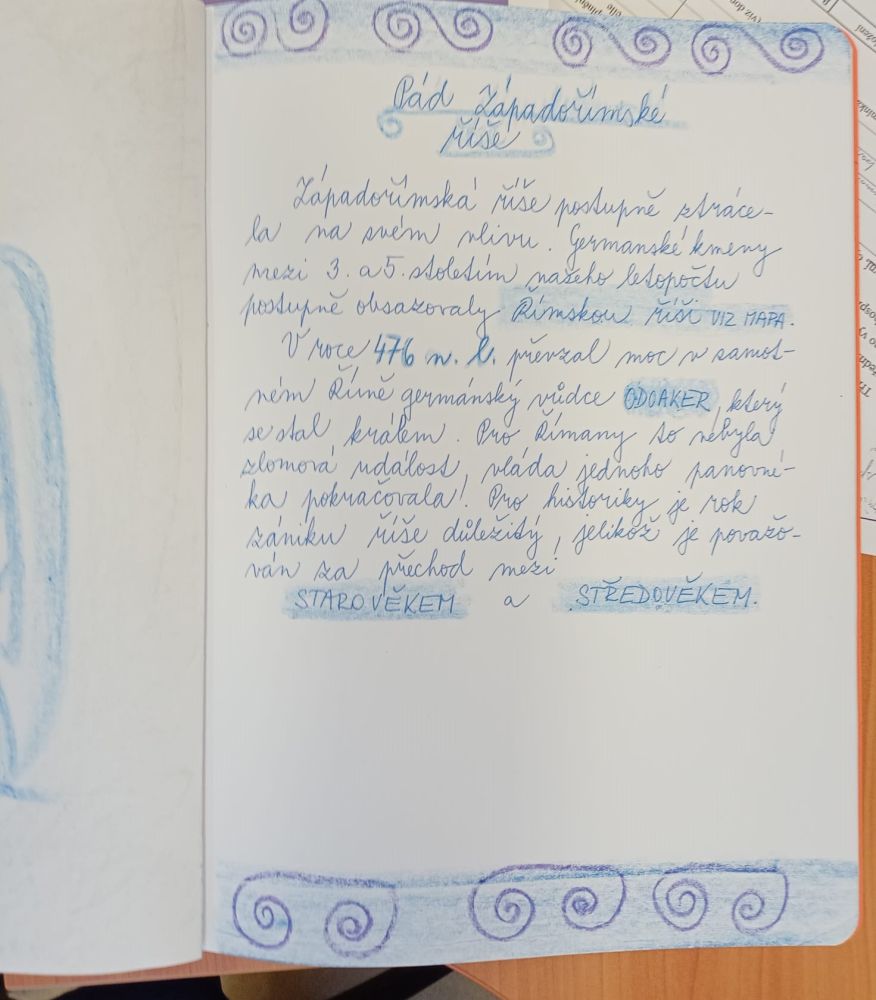 Pád Západořímské
říše
Západořímská říše postupně ztráce-
la na svém vlivu. Germanské kmeny
mezi 3. a 5. stoletím našeho letopočtu
postupně obsazovaly Římskou říši VIZ MAPA.
V roce 476 n. l. převzal moc v samot-
ném Římě germánský vůdce ODOAKER, který
se stal králem. Pro Římany to nebyla
zlomová událost, vláda jednoho panovní-
ka pokračovala! Pro historiky je rok
zániku říše důležitý, jelikož je považo-
ván za přechod mezi
STAROVĚKEM a STŘEDOVĚKEM.